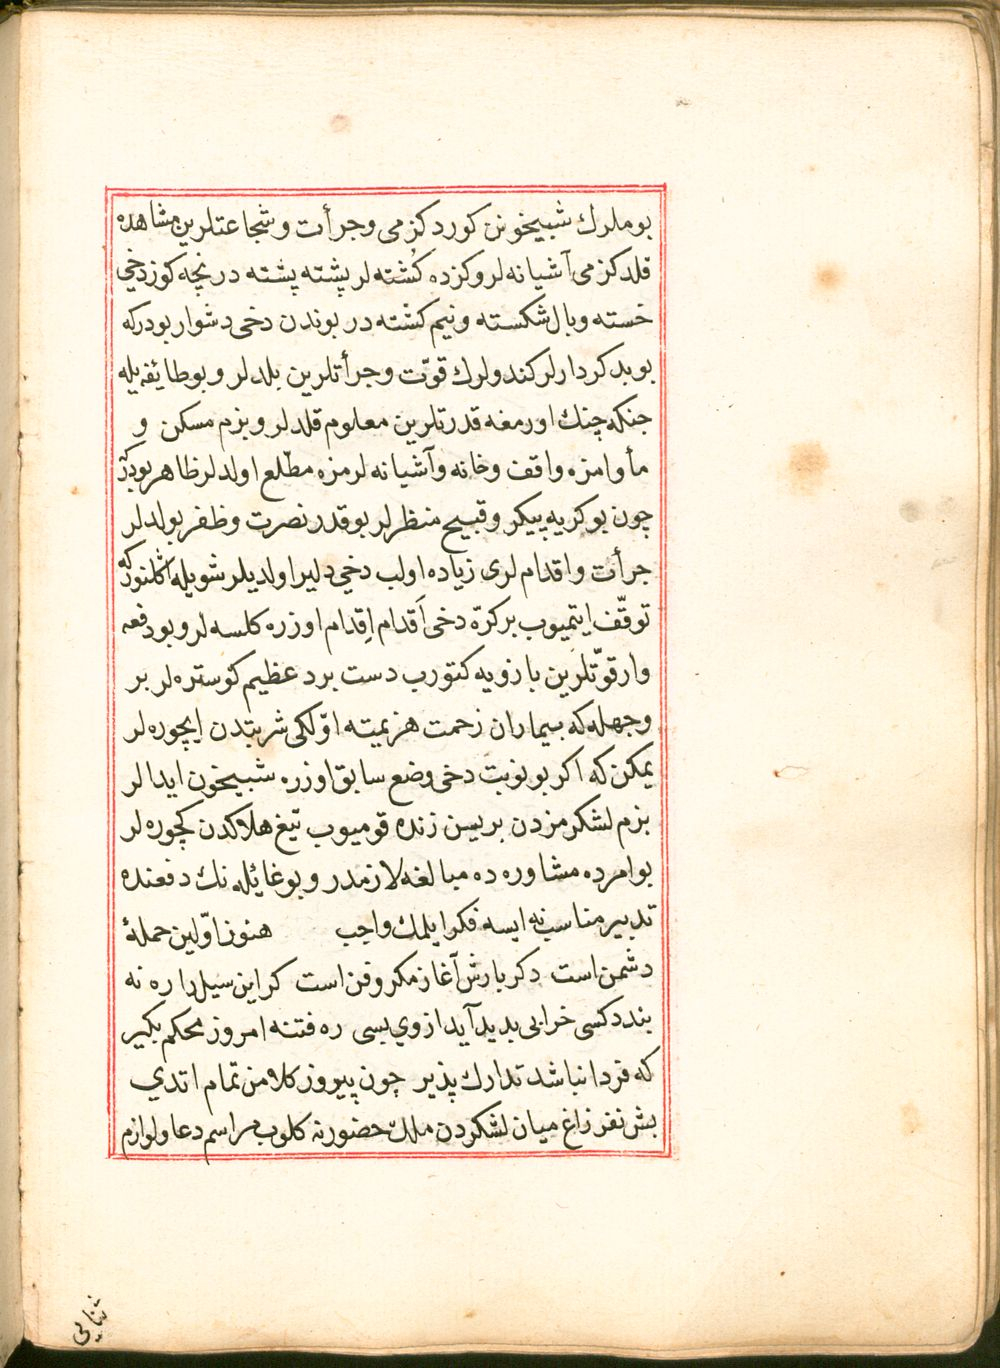 بوملرك شبيخونن كوردكزمى وجرأت وشجاعتلرين مشاهده
قلدكزمى آشيانه لروكزده كُشته لر پشته پشته در نچه كوز دخي
خسته وبال شكسته ونيم كشته در بوندن دخى دشوار بودركه
بو بدكردارلر كندولرك قوّت وجرأتلرين بلدلر وبو طائفه يله
جنكه چنك اورمغه قدرتلرين معلوم قلدلر وبزم مسكن و
مأوامزه واقف وخانه وآشيانه لرمزه مطّلع اولدلر ظاهر بودركه
چون بو كريه پيكر وقبيح منظرلر بوقدر نصرت وظفر بولدلر
جرأت واقداملرى زياده اولب دخي دلير اولديلر شويله اكلنوركه
توقّف ايتميوب بر كرّه دخى اَقدام اِقدام اوزره كلسه لر وبو دفعه
وار قوّتلرين بازويه كتورب دست برد عظيم كوستره لر بر
وجهله كه بيماران زحمت هزيمته اوّلكى شربتدن ايچوره لر
يمكن كه اكر بو نوبت دخى وضع سابق اوزره شبيخون ايدالر
بزم لشكرمزدن بريسن زنده قوميوب تيغ هلاكدن كچوره لر
بو امرده مشاوره ده مبالغه لازمدر وبو غائله نك دفعنده
تدبير مناسب نه ايسه فكر ايلمك واجب هنوز اوّلين حملهٔ
دشمن است دكر بارش آغاز مكر وفن است كر اين سيل را ره نه
بندد كسى خرابى بديد آيد ازوي بسى ره فتنه امروز محكم بكير
كه فردا نباشد تدارك پذير چون پيروز كلامن تمام اتدي
بش نفر زاغ ميان لشكردن ملك حضورنه كلوب مراسم دعا ولوازم
ثنايى